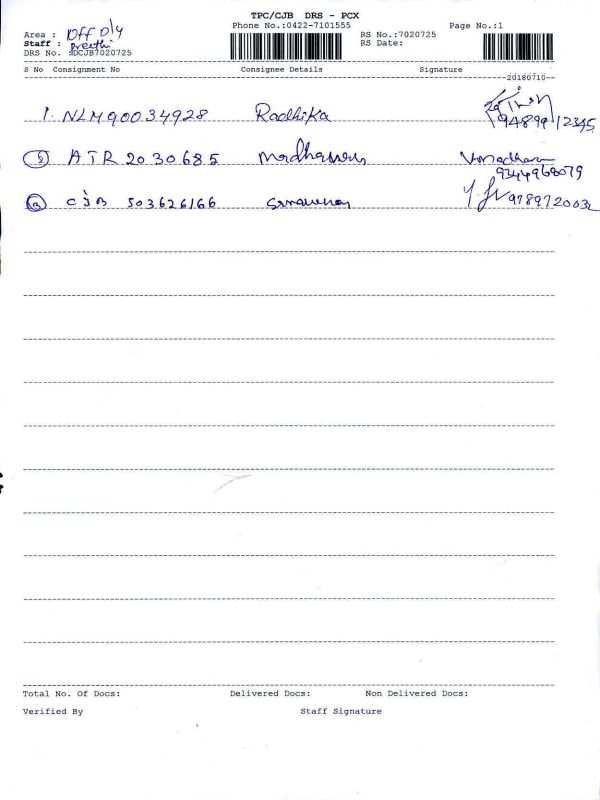 TPC/CJB DRS - PCX
Phone No.:0422-7101555
Page No.:1
Area : Off Dly
Staff : Preethi
DRS No. :DCJB7020725
RS No.:7020725
RS Date:
S No Consignment No Consignee Details Signature
20180710
1. NLM90034928 Radhika
9489912345
② ATR 2030685 Madhavan
9344968079
③ CJB 503626166 Saravanan
Total No. Of Docs: Delivered Docs: Non Delivered Docs:
Verified By Staff Signature